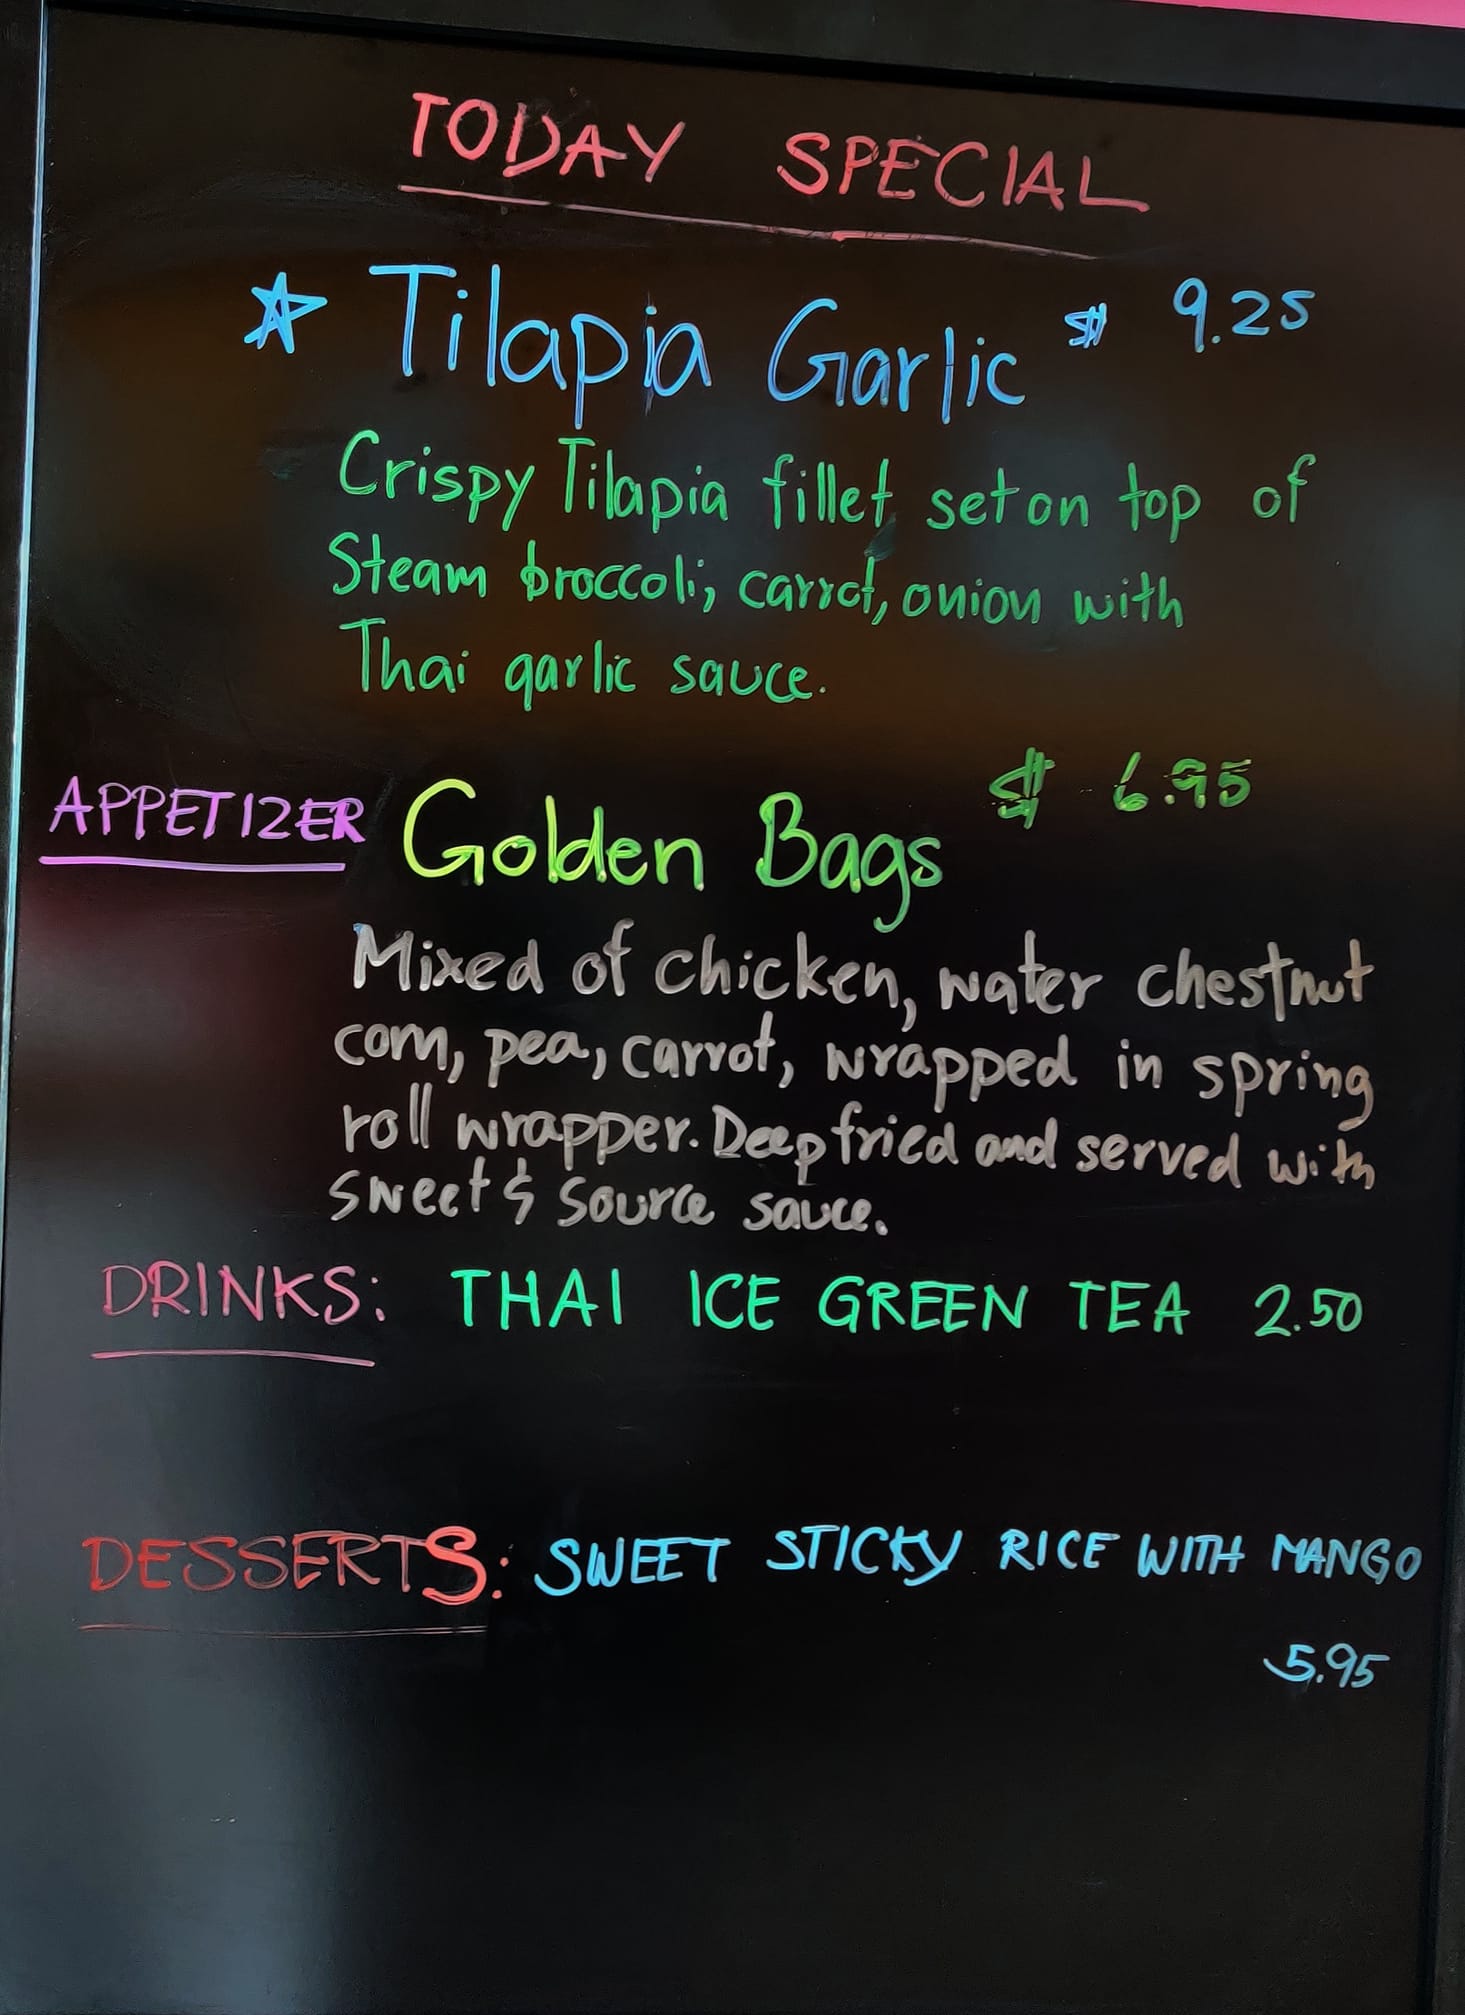 TODAY SPECIAL
☆ Tilapia Garlic $ 9.25
Crispy Tilapia fillet set on top of
Steam broccoli, carrot, onion with
Thai garlic sauce.
APPETIZER Golden Bags $ 6.95
Mixed of chicken, water chestnut
corn, pea, carrot, wrapped in spring
roll wrapper. Deep fried and served with
sweet & source sauce.
DRINKS: THAI ICE GREEN TEA 2.50
DESSERTS: SWEET STICKY RICE WITH MANGO
5.95